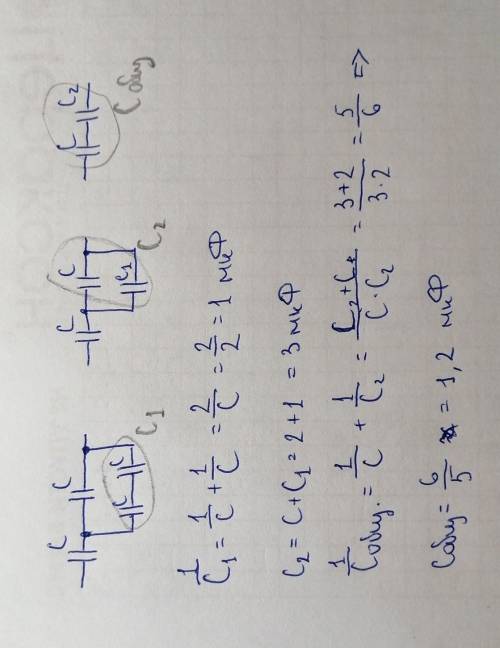 C C C C C₁
C C C₁ C₂
C C₂ Cобщ
1/C₁ = 1/C + 1/C = 2/C = 2/2 = 1 мкФ
C₂ = C + C₁ = 2 + 1 = 3 мкФ
1/Cобщ. = 1/C + 1/C₂ = C₂+C/C·C₂ = 3+2/3·2 = 5/6 =>
Cобщ = 6/5 = 1,2 мкФ